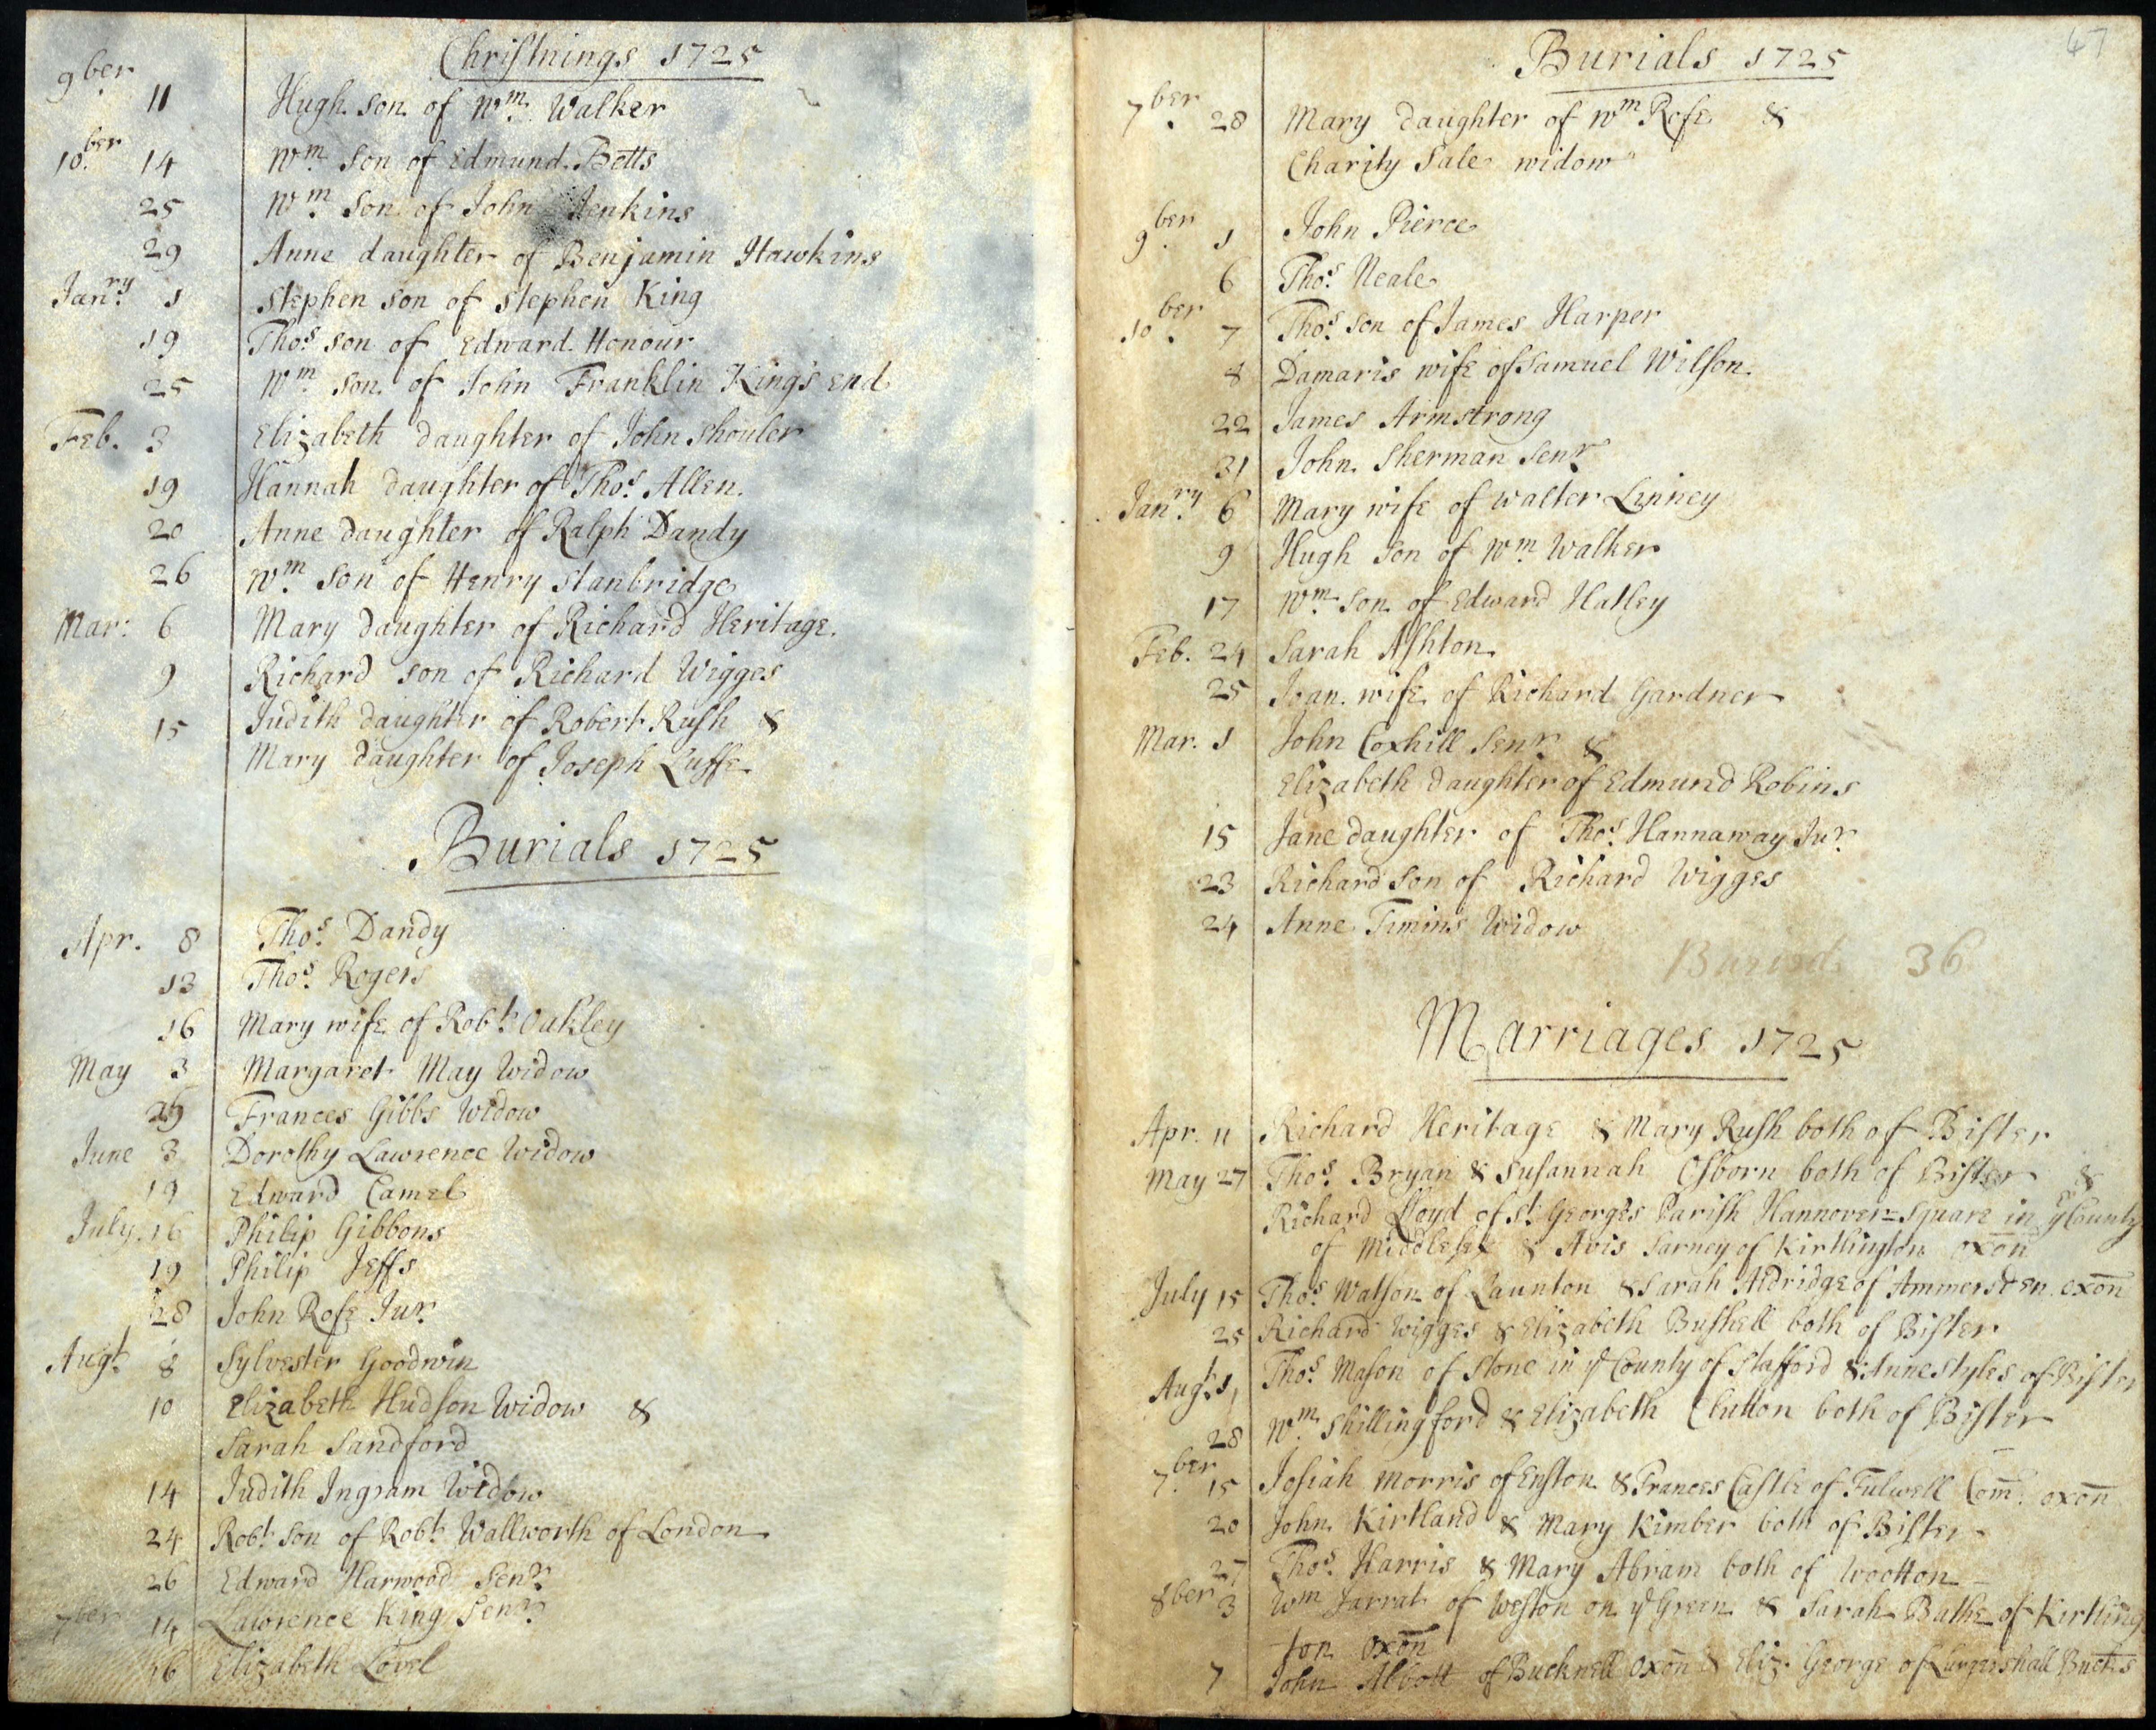 Christnings 1725
9ber 11 Hugh son of Wm. Walker
10ber 14 Wm. Son of Edmund Betts
25 Wm. Son of John Jenkins
29 Anne daughter of Benjamin Hawkins
Janry. 1 Stephen son of Stephen King
19 Thos. son of Edward Honour
25 Wm. son of John Franklin King's end
Feb. 3 Elizabeth daughter of John Shouler
19 Hannah daughter of Thos. Allen.
20 Anne daughter of Ralph Dandy
26 Wm. Son of Henry Stanbridge
Mar: 6 Mary daughter of Richard Heritage.
9 Richard son of Richard Wigges
15 Judith daughter of Robert Rush &
Mary daughter of Joseph Luffe
Burials 1725
Apr. 8 Thos. Dandy
13 Thos. Rogers
16 Mary wife of Robt. Oakley
May 3 Margaret May Widow
Frances Gibbs Widow
June 3 Dorothy Lawrence Widow
19 Edward Camel
July 16 Philip Gibbons
19 Philip Jeffs
28 John Rose Junr.
Augt. 8 Sylvester Goodwin
10 Elizabeth Hudson Widow &
Sarah Sandford
14 Judith Ingram Widow
24 Robt. Son of Robt. Wallworth of London
26 Edward Harwood Senr.
7ber 14 Lawrence King Senr.
16 Elizabeth Lovel
67
Burials 1725
7ber. 28 Mary daughter of Wm Rose &
Charity Sale widow
9ber. 1 John Pierce
6 Thos. Neale
10ber. 7 Thos. son of James Harper
8 Damaris wife of Samuel Wilson.
22 James Armstrong
31 John Sherman Senr.
Janry. 6 Mary wife of Walter Linney
9 Hugh Son of Wm. Walker
17 Wm. Son of Edward Hatley
Feb. 24 Sarah Ashton
25 Joan wife of Richard Gardner
Mar. 1 John Coxhill Senr. &
Elizabeth daughter of Edmund Robins
15 Jane daughter of Thos. Hannaway Junr.
23 Richard Son of Richard Wigges
24 Anne Timins Widow
Buried 36
Marriages 1725
Apr. 11 Richard Heritage & Mary Rush both of Bister
May 27 Thos. Bryan & Susannah Osborn both of Bister &
Richard Lloyd of St. George's Parish Hannover=Square in ye County
of Middlesex & Avis Sarney of Kirtlington Oxon
July 15 Thos. Watson of Launton & Sarah Aldridge of Ammersden Oxon
25 Richard Wigges & Elizabeth Bushell both of Bister
Augt. 1, Thos. Mason of Stone in ye County of Stafford & Anne Styles of Bister
28 Wm. Shillingford & Elizabeth Clutton both of Bister
7ber. 15 Josiah Morris of Enston & Frances Castle of Fulwell Com. Oxon
20 John Kirtland & Mary Kimber both of Bister
27 Thos. Harris & Mary Abram both of Wootton
8ber 3 Wm Jarrat of Weston on ye Green & Sarah Bathe of Kirtling
ton Oxon
7 John Abbott of Bucknell Oxon & Eliz. George of Lurgershall Bucks